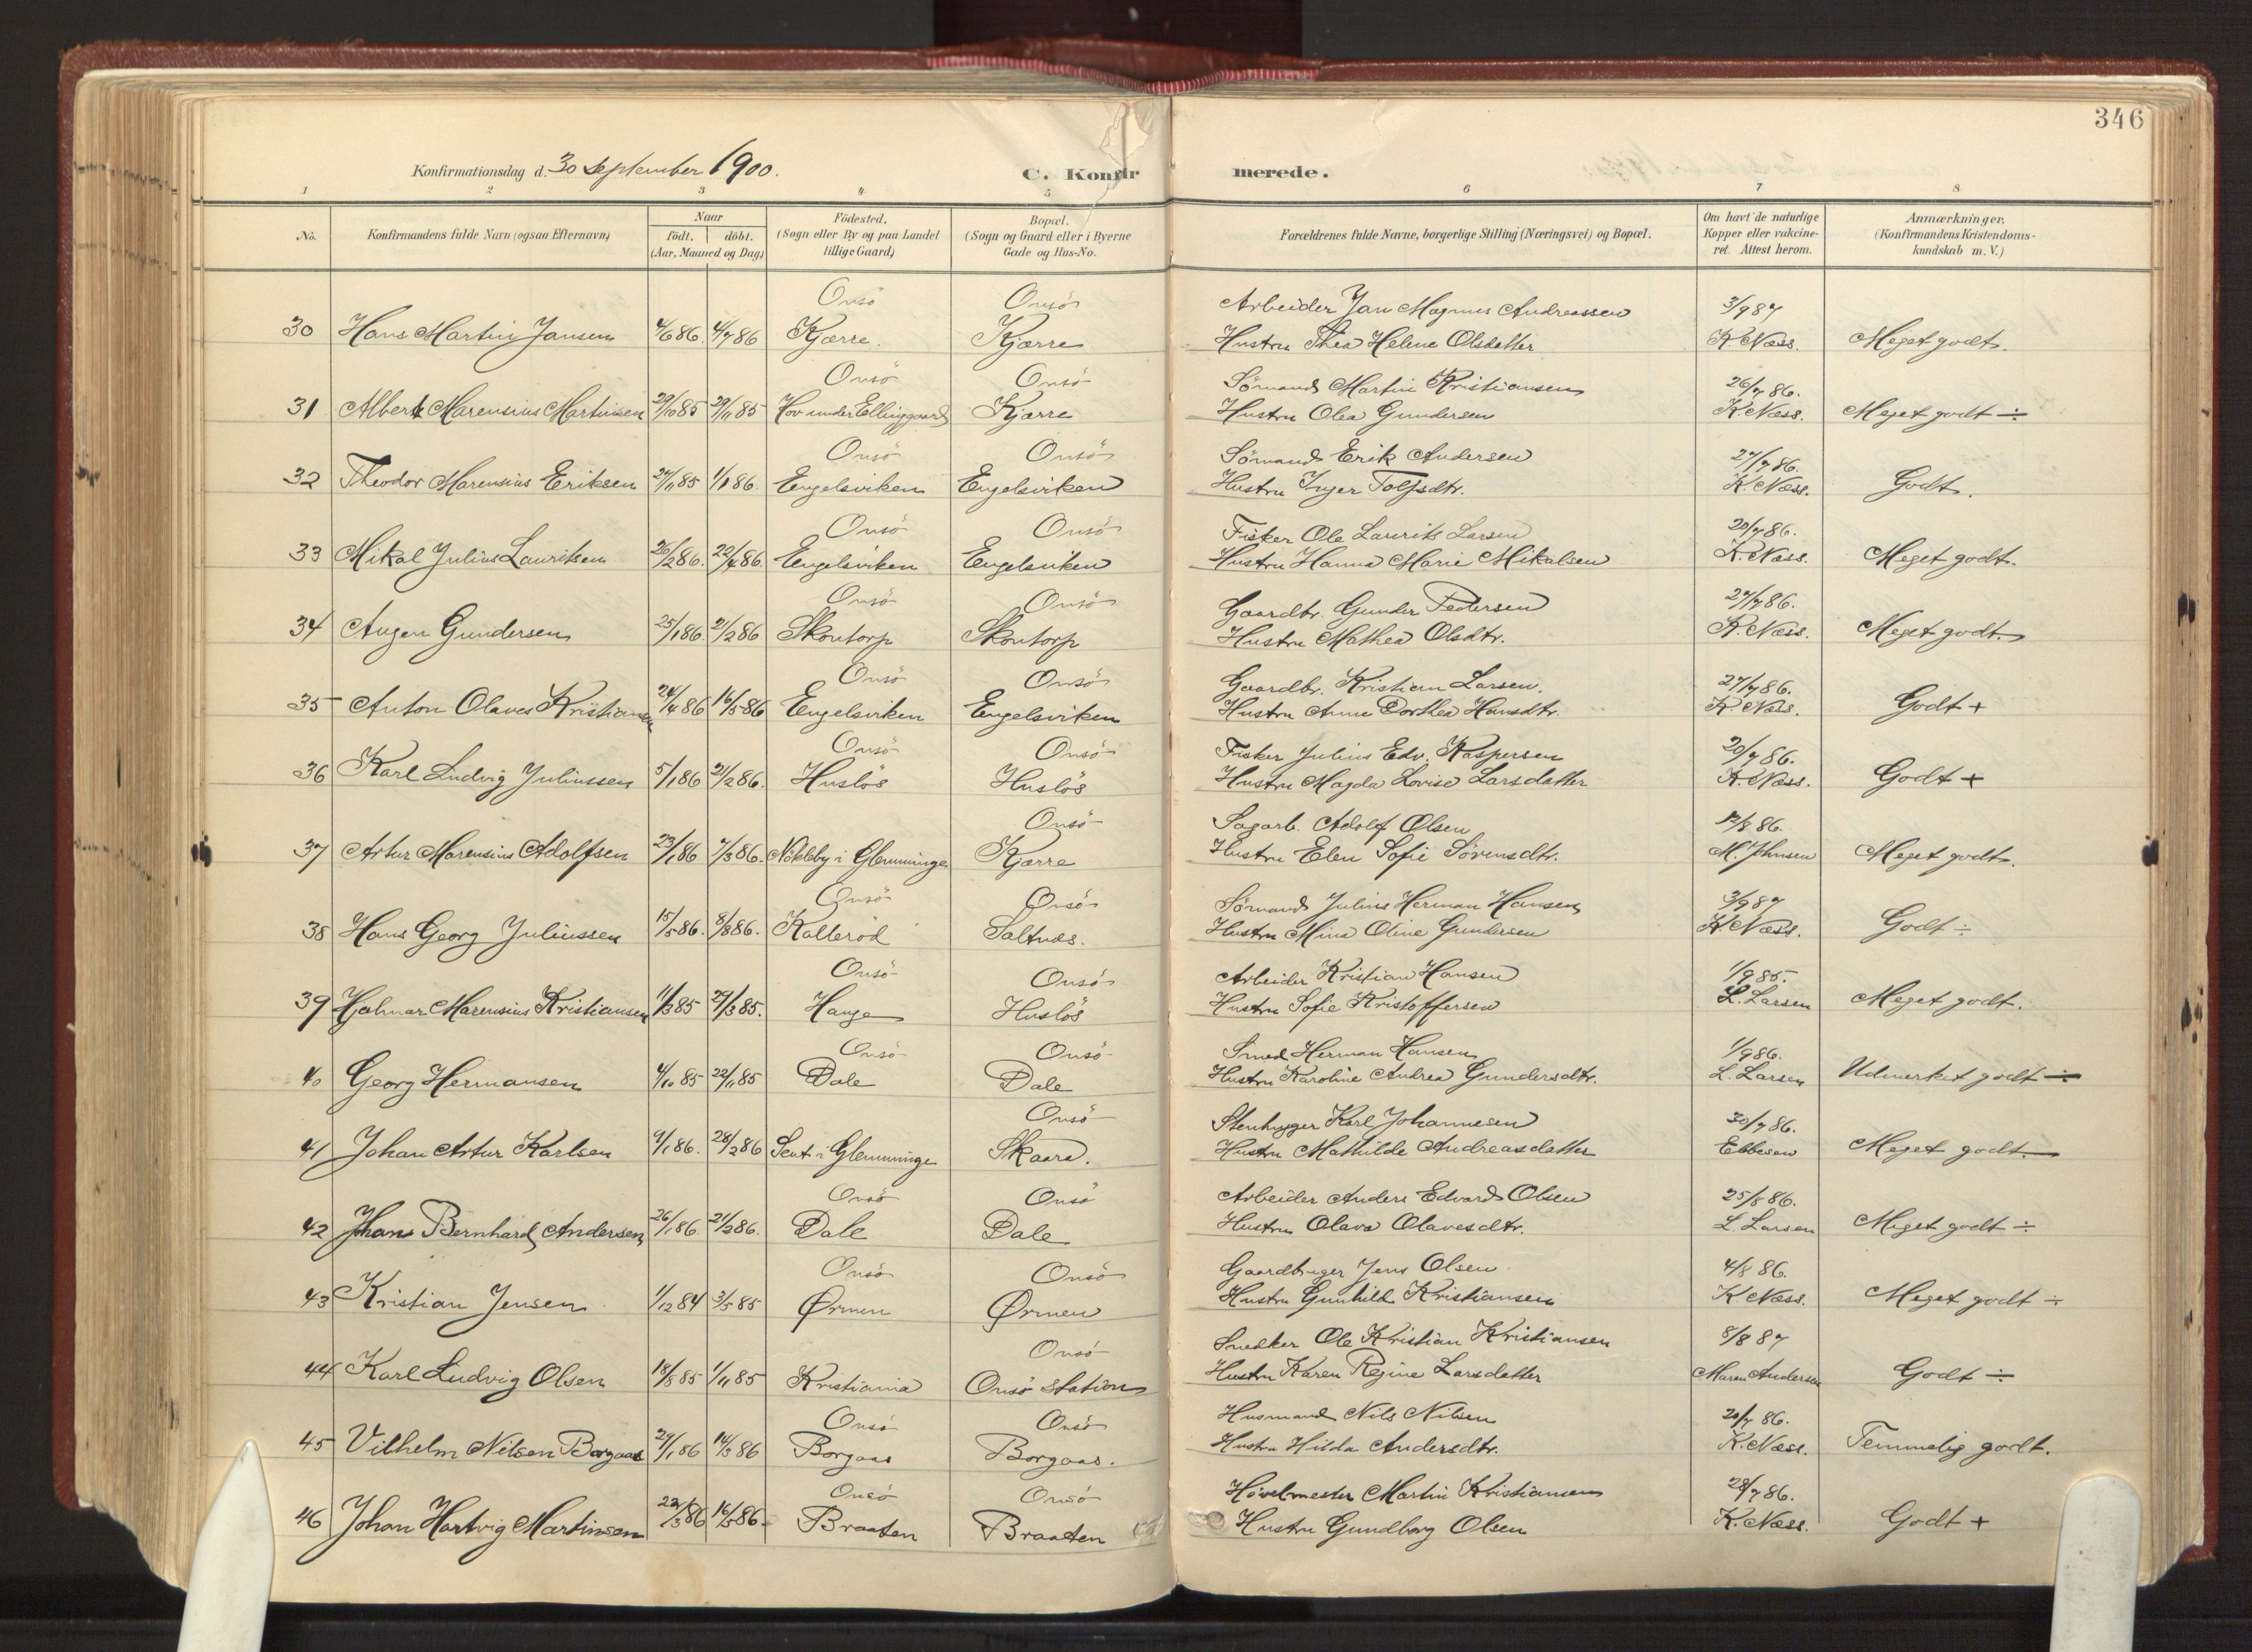 346
Konfirmationsdag d. 30 September 1900.
C. Konfirmerede.
1 2 3 4 5 6 7 8
No.
Konfirmandens fulde Navn (ogsaa Efternavn)
Naar
födt. döbt.
(Aar, Maaned og Dag)
Födested.
(Sogn eller By og paa Landet
tillige Gaard)
Bopæl.
(Sogn og Gaard eller i Byerne
Gade og Hus-No.
Forældrenes fulde Navne, borgerlige Stilling (Næringsvei) og Bopæl.
Om havt de naturlige
Kopper eller vakcine-
ret. Attest herom.
Anmærkninger.
(Konfirmandens Kristendoms-
kundskab m. V.)
Onsö Onsö Arbeider Jan Magnus Andreassen 3/9 87
30 Hans Martin Jansen 4/6 86. 4/7 86 Kjærre. Kjærre Hustru Thea Helene Olsdatter K. Næss. Meget godt.
Onsö Onsö Sömand Martin Kristiansen 26/7 86.
31 Albert Marensius Martinsen 29/10 85 29/11 85 Hov under Ellinggaard Kjærre Hustru Olea Gundersen K. Næss. Meget godt ÷
Onsö Onsö Sömand Erik Andersen 27/7 86.
32 Theodor Marensius Eriksen 27/11 85 1/1 86. Engelsviken Engelsviken Hustru Inger Tolfsdtr. K. Næss. Godt.
Onsö Onsö Fisker Ole Laurits Larsen 20/7 86.
33 Mikal Julius Lauritsen 26/2 86. 22/4 86. Engelsviken Engelsviken Hustru Hanna Marie Mikalsen K. Næss. Meget godt.
Onsö Onsö Gaardbr. Gunder Pedersen 27/7 86.
34 Augen Gundersen 25/1 86. 21/2 86 Skontorp Skontorp Hustru Mathea Olsdtr. K. Næss. Meget godt.
Onsö Onsö Gaardbr. Kristian Larsen. 27/7 86.
35 Anton Olaves Kristiansen 24/4 86 16/5 86 Engelsviken Engelsviken Hustru Anne Dorthea Hansdtr. K. Næss. Godt +
Onsö Onsö Fisker Julius Edv. Kaspersen 20/7 86.
36 Karl Ludvig Juliussen 5/1 86 21/2 86. Huslös Huslös Hustru Magda Lovise Larsdatter K. Næss. Godt +
Onsö Sagarb. Adolf Olsen 12/8 86.
37 Artur Marensius Adolfsen 23/1 86 7/3 86. Nökleby i Glemminge Kjærre Hustru Elen Sofie Sörensdtr. M. Johnsen Meget godt.
Onsö Onsö Sömand Julius Herman Hansen 3/9 87
38 Hans Georg Juliussen 15/5 86. 8/8 86. Kalleröd Saltnes. Hustru Mina Oline Gundersen K. Næss. Godt ÷
Onsö Onsö Arbeider Kristian Hansen 1/9 85.
39 Hjalmar Marensius Kristiansen 11/3 85 29/3 85. Hauge Huslös Hustru Sofie Kristoffersen L. Larsen Meget godt.
Onsö Onsö Smed Herman Hansen 1/9 86.
40 Georg Hermansen 4/10 85 22/11 85 Dale Dale Hustru Karoline Andrea Gundersdtr. L. Larsen Udmerket godt ÷
Onsö Stenhugger Karl Johannesen 30/7 86.
41 Johan Artur Karlsen 9/1 86. 28/2 86 i Glemminge Skaara. Hustru Mathilde Andreasdatter Ebbesen Meget godt.
Onsö Onsö Arbeider Anders Edvard Olsen 25/8 86.
42 Johans Bernhard Andersen 26/1 86. 21/2 86. Dale Dale Hustru Olava Olavesdtr. L. Larsen Meget godt ÷
Onsö Onsö Gaardbruger Jens Olsen 4/8 86.
43 Kristian Jensen 1/12 84 3/5 85 Ørmen Ørmen Hustru Gunhild Kristiansen K. Næss. Meget godt ÷
Onsö Snedker Ole Kristian Kristiansen 8/8 87
44 Karl Ludvig Olsen 18/8 85 1/11 85 Kristiania Onsö Station Hustru Karen Regine Larsdatter Maren Andersen Godt ÷
Onsö Onsö Husmand Nils Nilsen 20/7 86.
45 Vilhelm Nilsen Borgaas 29/1 86 14/3 86 Borgaas Borgaas. Hustru Hilda Andersdtr. K. Næss. Temmelig godt.
Onsö Onsö Hövelmester Martin Kristiansen 28/7 86.
46 Johan Hartvig Martinsen 22/3 86 16/5 86. Braaten Braaten Hustru Gundborg Olsen K. Næss. Godt +